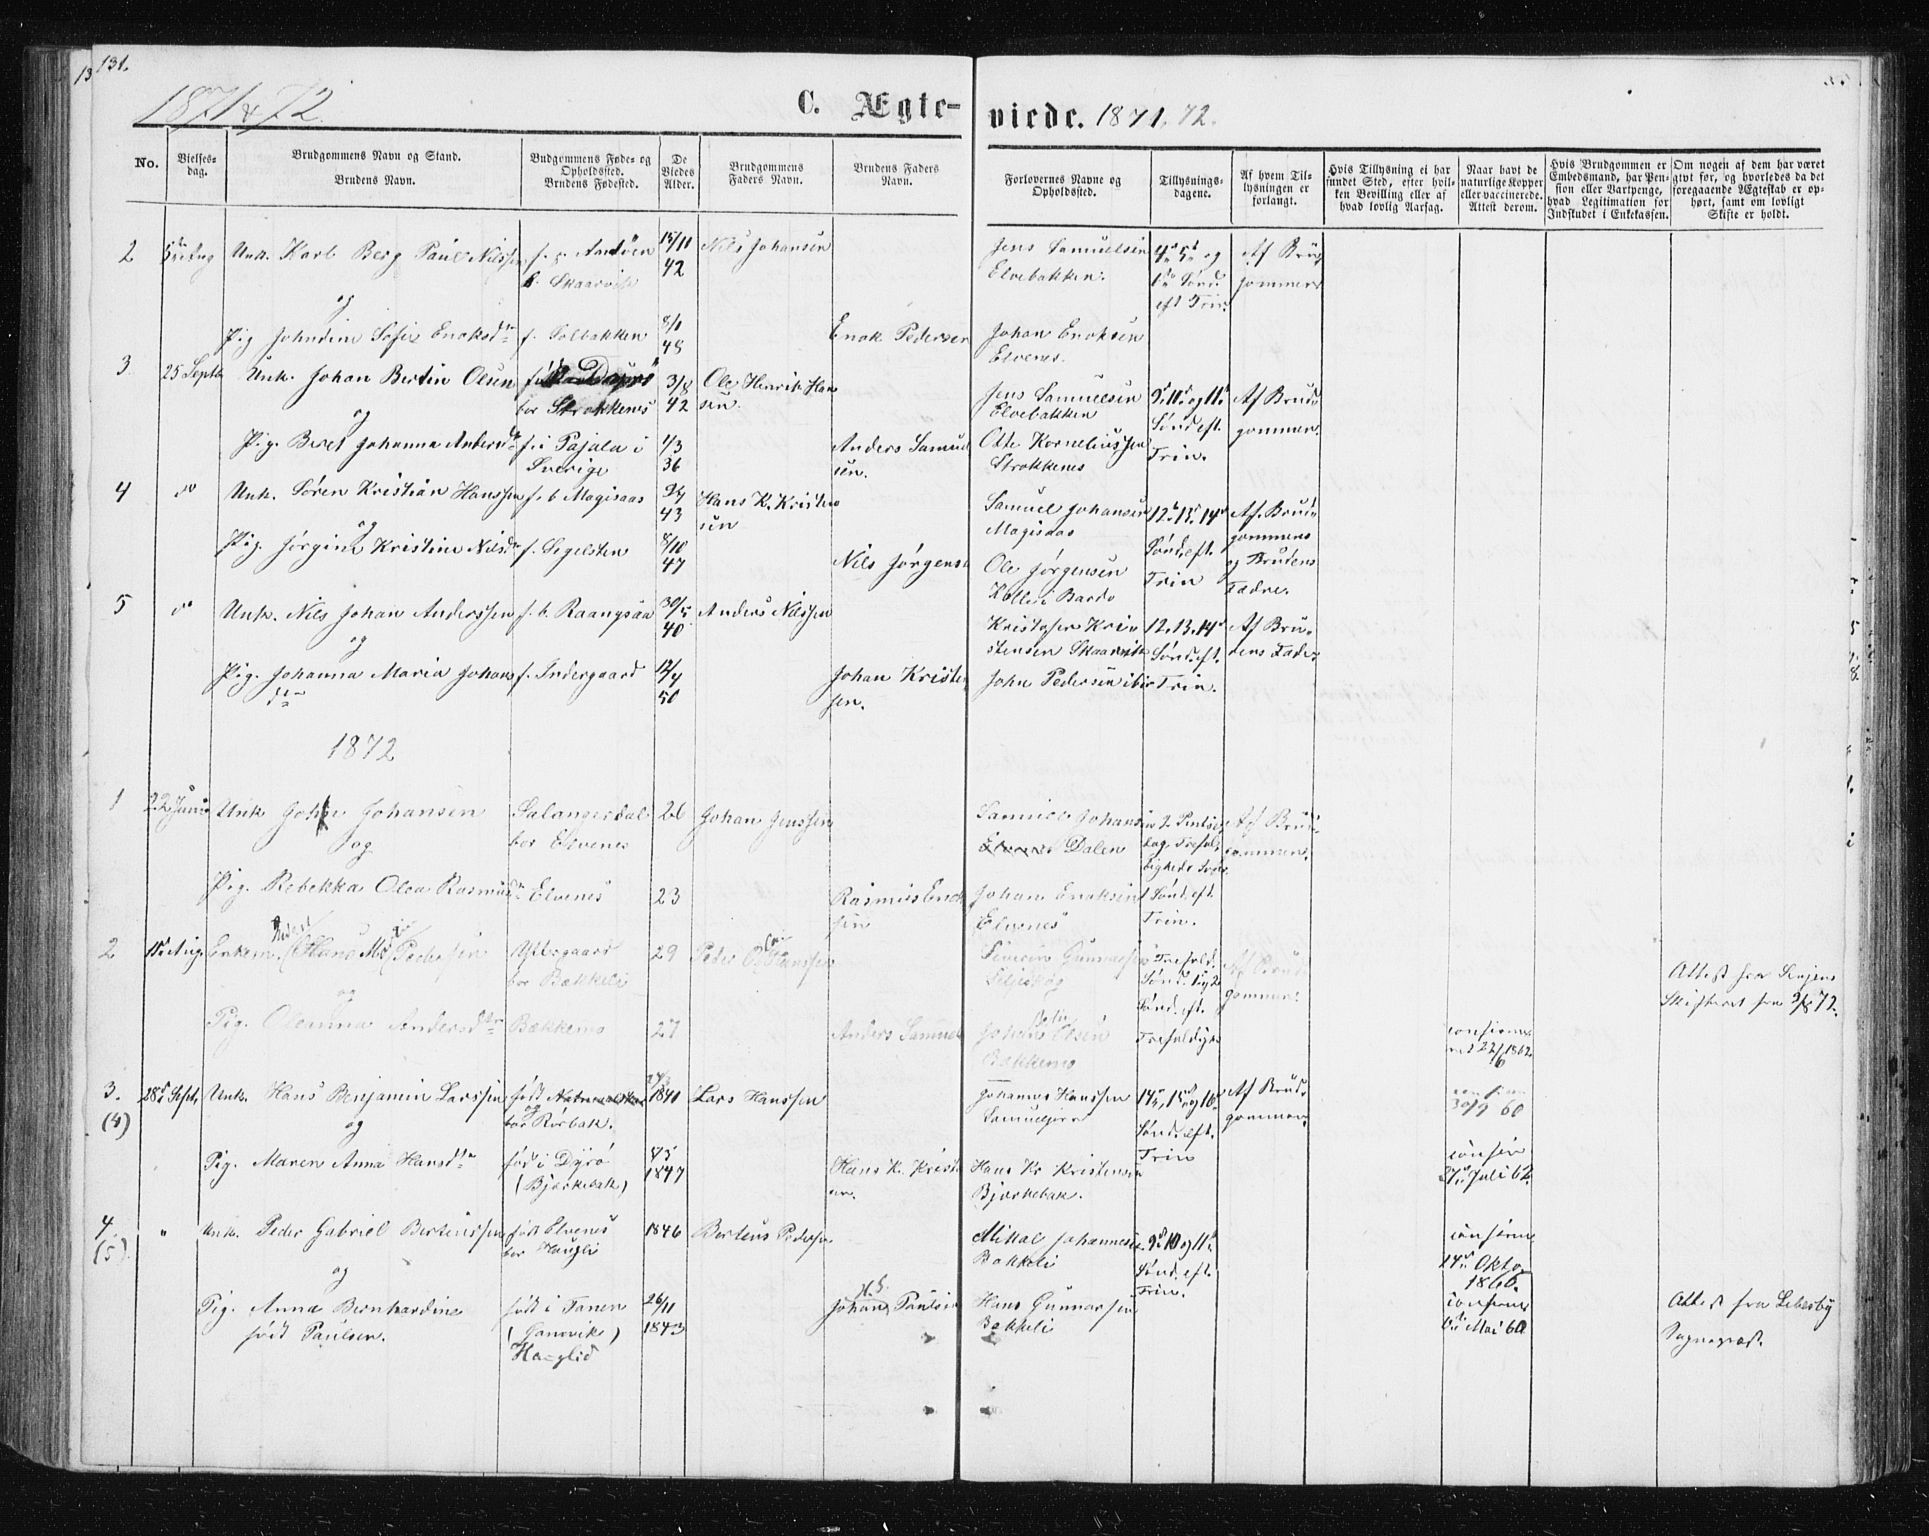 131.
1871 & 72.
C. Ægte-
viede. 1871. 72.
No.
Vielses-
dag.
Brudgommens Navn og Stand.
Brudens Navn.
Budgommens Føde- og
Opholdsted.
Brudens Fødested.
De
Viedes
Alder.
Brudgommens
Faders Navn.
Brudens Faders
Navn.
Forlovernes Navne og
Opholdsted.
Tillysnings-
dagene.
Af hvem Til-
lysningen er
forlangt.
Hvis Tillysning ei har
fundet Sted, efter hvil-
ken Bevilling eller af
hvad lovlig Aarsag.
Naar havt de
naturlige Kopper
eller vaccinerede.
Attest derom.
Hvis Brudgommen er
Embedsmand, har Pen-
sion eller Vartpenge,
hvad Legitimation for
Indskudet i Enkekassen.
Om nogen af dem har været
givt før, og hvorledes da det
foregaaende Ægteskab er op-
hørt, samt om lovligt
Skifte er holdt.
2 5te Aug Unk. Karl Berg Paul Nilssen
b. Skaarvik
15/11
42
Nils Johansen
Jens Samuelsen
Elvebakken.
4de 5te og
6te Sønd.
eft Trin.
Af Brud
gommen
og
Pig Johndine Sofie Enoksdtr f. Solbakken
8/1
48
Enok Pedersen
Johan Enoksen
Elvenes.
3 25 Septb Unk. Johan Bertin Olsen
bor Strokkenes
3/8
42
Ole Henrik Han
sen.
Jens Samuelsen
Elvebakken
9de 10de og 11te
Sønd eft.
Trin.
Af Brud
gommen.
og
Pig. Beret Johanna Andersdtr f. i Pajala i
Sverige
1/3
36
Anders Samuel
sen.
Otte Korneliussen
Strokkenes
4 do Unk. Søren Kristian Hanssen f. b Magisaas
9/4
43
Hans K. Kristen
sen
Samuel Johansen
Magisaas
12te 13de 14de
Sønd. eft.
Trin
Af Brud
gommens
og Brudens
Fadre.
og
Pig. Jørgine Kristine Nilsdtr f. Segelsten
8/10
47
Nils Jørgensen
Ole Jørgensen
i Bardo
5 do Unk. Nils Johan Anderssen f. b. Raangsaa
30/5
40
Anders Nilssen
Kristofer Kri
stensen Skaarvik
12. 13. 14de
Sønd. eft.
Trin.
Af Bru
dens Fader
og
Pig. Johanna Maria Johans
dtr
f. Indergaard
12/4
50
Johan Kristen
sen.
John Pedersen
1872
1 22 Juni Unk John Johansen
og
Salangsdal
bor Elvenes
26 Johan Jenssen
Samuel Johansen
Elvenes Dalen
2 Pintse
dag Trefol
digheds Sønd.
1 Sønd. eft.
Trin.
Af Brud
gommen.
Pig. Rebekka Olea Rasmusdtr Elvenes 23
Rasmus Enok
sen
Johan Enoksen
Elvenes
2 15de Aug. Enkem. Hans Pedersen
og
bor Bækkeli
29 Peder Hanssen
Gunnarsen
Trefold.
Sønd.
Sønd. eft.
Trefoldigh
Af Brud
gommen.
Attest fra Senjens
Skifteret fra 9/8 72.
Pig. Olemma Andersdtr Bækkemo 27
Anders Samuel
Olsen
Bækkemo
confirme
ret 22/6 1862.
3.
(4)
28de Sept. Unk. Hans Benjamin Larssen
og
født
bor Rørbak.
1840 Lars Hanssen
Johannes Hanssen
14de, 15de og 16de
Sønd. eft.
Trin
Af Brud
gommen
30/9 60
Pig. Maren Anna Hansdtr
fød i Dyrø
(Bjørkebak)
1847
Hans K. Krist
Hans Kr Kristensen
Bjørkebak.
confir
27de Juli 62.
4.
(5).
" Unk. Peder Gabriel Berteussen
født Elvenes
bor Haugli
1846 Berteus Pedersen
Mikal Johannesen
Bakkeli
9de 10 og 11te
Sønd. eft.
Trin.
confirme
14de Okto.
1866.
og
Pig. Anna Bernhardine
født Paulsen.
født i Tanen
26/11
1843
Johan Paulsen
Hans Gunnarsen
Bakkeli
confirme
6te Mai 60
Attest fra Lebesby
Sognepræst.